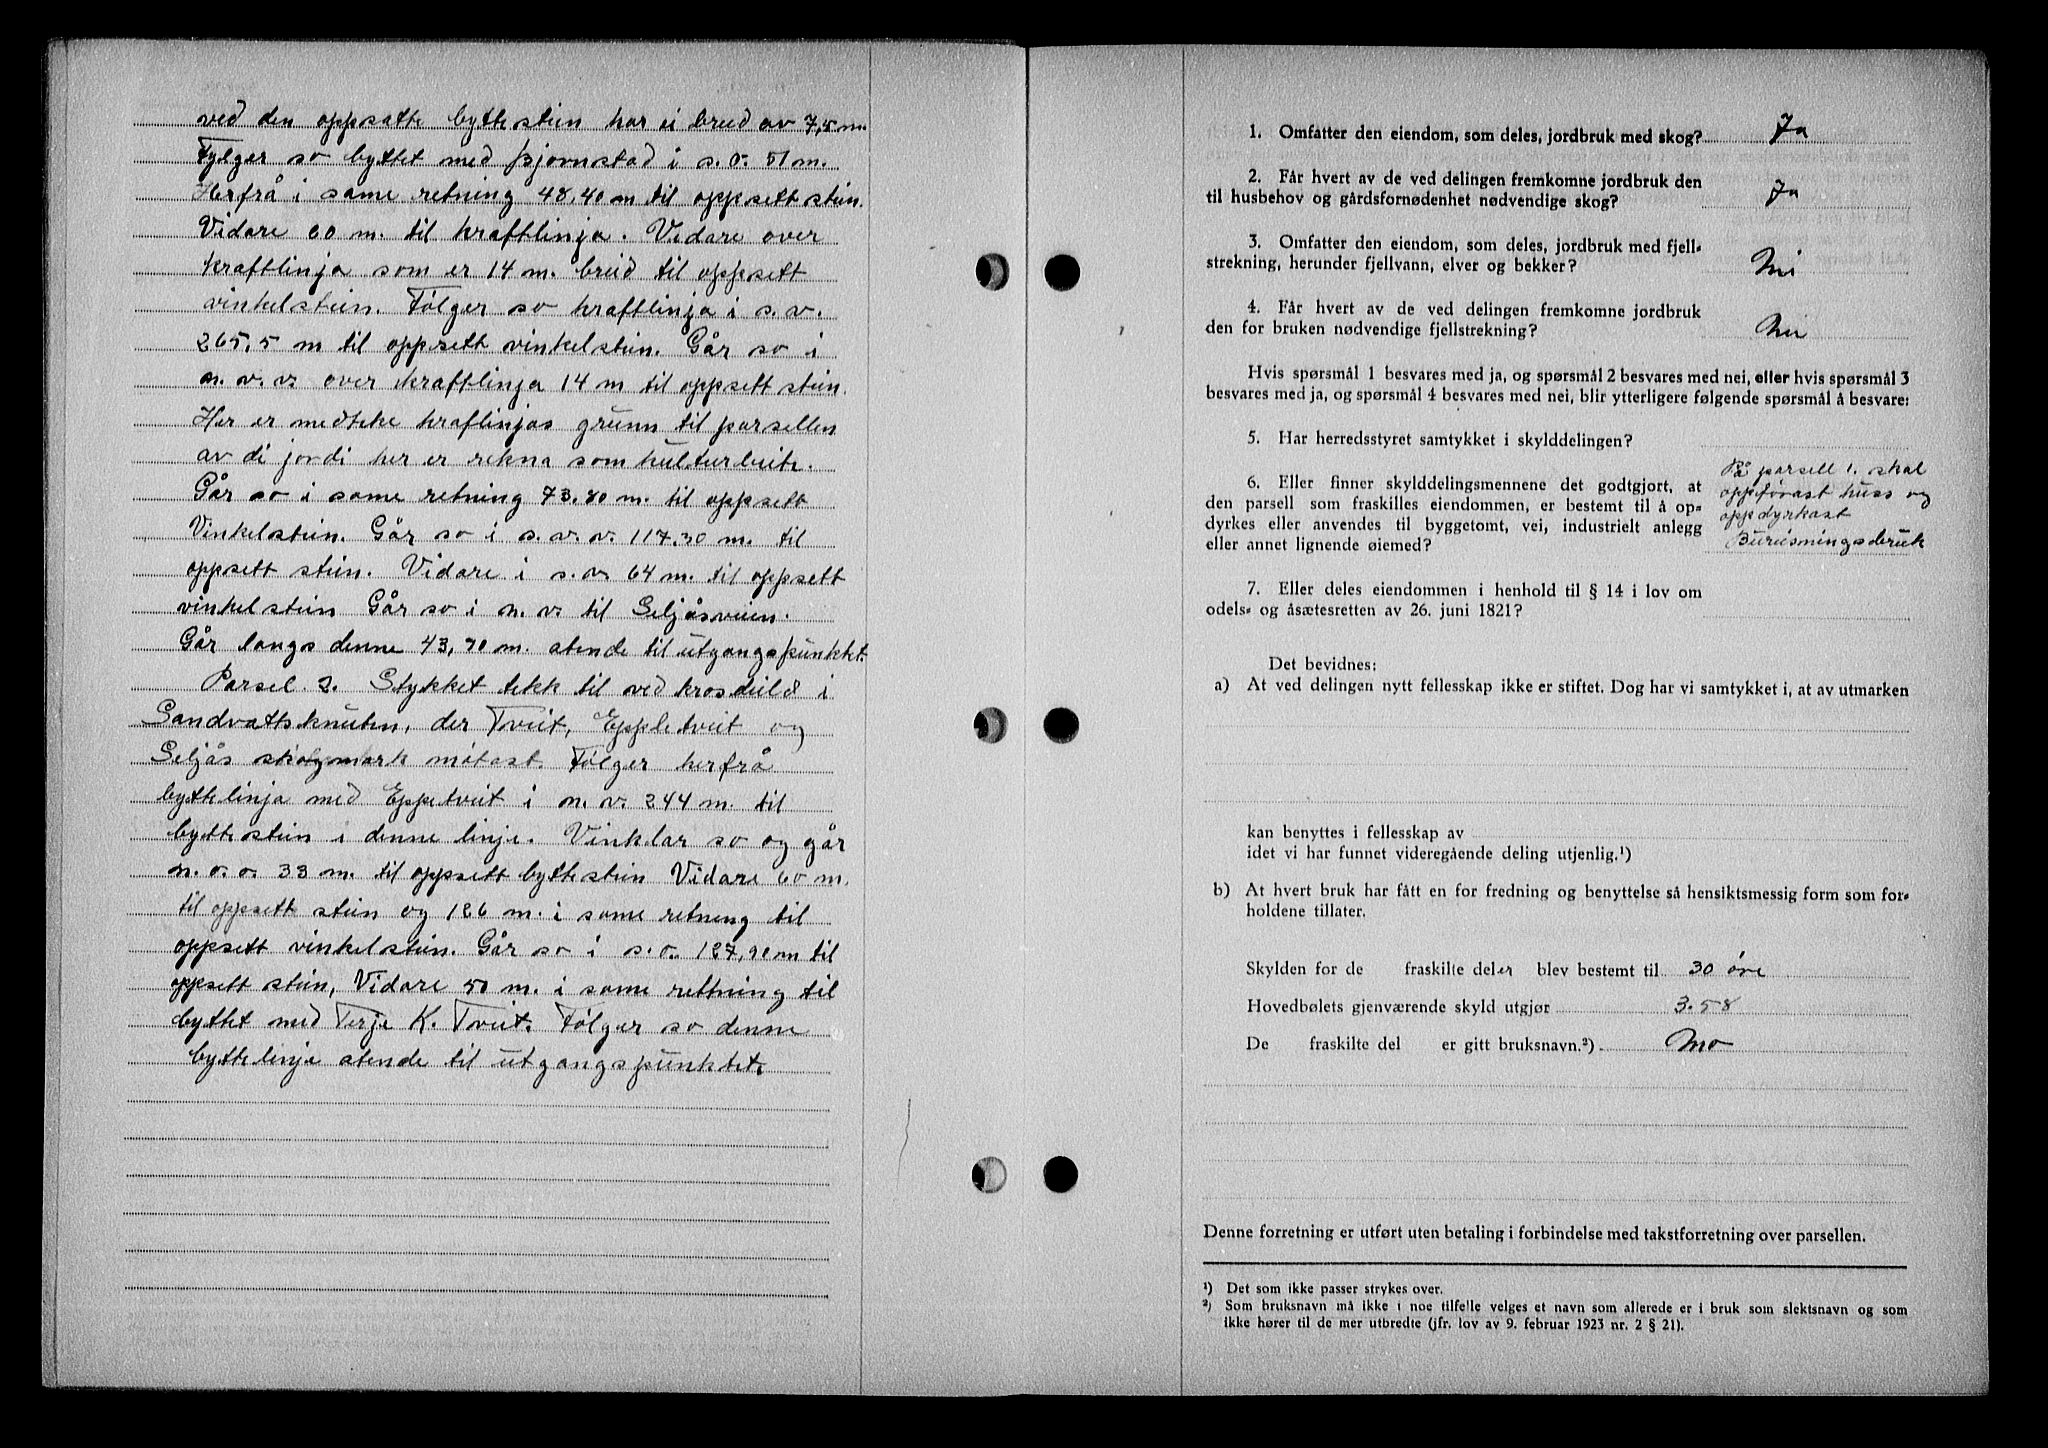 ved den oppsatte byttestein har ei breid av 7,5 m.
Fylger so byttet med Bjørnstad i s.o. 51 m.
Herfrå i same retning 48,40 m til oppsett stein.
Vidare 60 m. til kraftlinja. Vidare over
kraftlinja som er 14 m. breid til oppsett
vinkelstein. Følger so kraftlinja i s.v.
265,5 m til oppsett vinkelstein. Går so i
n.v.v. over kraftlinja 14 m til oppsett stein.
Her er medteke kraflinjas grunn til parsellen
av di jordi her er rekna som kulturbeite.
Går so i same retning 73.80 m. til oppsett
Vinkelstein. Går so i s.v.v. 117.30 m. til
oppsett stein. Vidare i s.v. 64 m. til oppsett
vinkelstein Går so i n.v. til Seljåsveien.
Går langs denne 43,70 m. atende til utgangspunktet.
Parsel. 2. Stykket tekk til ved krosheld i
Sandvattsknuten, der Tveit, Eppletveit og
Seljås skogmark møtast. Følger herfrå
byttelinja med Eppetveit i n.v. 244 m. til
byttestein i denne linje. Vinklar so og går
n.o.o. 33 m. til oppsett byttestein Vidare 60 m.
til oppsett stein og 126 m. i same retning til
oppsett vinkelstein. Går so i s.o. 127,90 m til
oppsett stein, Vidare 50 m. i same rettning til
byttet med Terje K. Tveit. Følger so denne
byttelinje atende til utgangspunktet.
1. Omfatter den eiendom, som deles, jordbruk med skog? Ja
2. Får hvert av de ved delingen fremkomne jordbruk den
til husbehov og gårdsfornødenhet nødvendige skog? Ja
3. Omfatter den eiendom, som deles, jordbruk med fjell-
strekning, herunder fjellvann, elver og bekker? Nei
4. Får hvert av de ved delingen fremkomne jordbruk
den for bruken nødvendige fjellstrekning? Nei
Hvis spørsmål 1 besvares med ja, og spørsmål 2 besvares med nei, eller hvis spørsmål 3
besvares med ja, og spørsmål 4 besvares med nei, blir ytterligere følgende spørsmål å besvare:
5. Har herredsstyret samtykket i skylddelingen?
6. Eller finner skylddelingsmennene det godtgjort, at
den parsell som fraskilles eiendommen, er bestemt til å op-
dyrkes eller anvendes til byggetomt, vei, industrielt anlegg
eller annet lignende øiemed?
På parsell 1. skal
oppførast huss og
oppdyrkast
Bureisningsbruk
7. Eller deles eiendommen i henhold til § 14 i lov om
odels- og åsætesretten av 26. juni 1821?
Det bevidnes:
a) At ved delingen nytt fellesskap ikke er stiftet. Dog har vi samtykket i, at av utmarken
kan benyttes i fellesskap av
idet vi har funnet videregående deling utjenlig.¹)
b) At hvert bruk har fått en for fredning og benyttelse så hensiktsmessig form som for-
holdene tillater.
Skylden for de fraskilte deler blev bestemt til 30 øre
Hovedbølets gjenværende skyld utgjør 3.58
De fraskilte del er gitt bruksnavn.²) Mo
Denne forretning er utført uten betaling i forbindelse med takstforretning over parsellen.
¹) Det som ikke passer strykes over.
²) Som bruksnavn må ikke i noe tilfelle velges et navn som allerede er i bruk som slektsnavn og som
ikke hører til de mer utbredte (jfr. lov av 9. februar 1923 nr. 2 § 21).